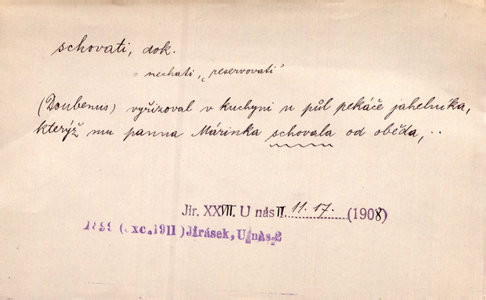 schovati, dok.
= nechati, „reservovati“
(Doubenus) vyřizoval v kuchyni u půl pekáče jahelníka,
kterýž mu panna Márinka schovala od oběda, ..
Jir. XXVII. U nás II. 11. 17. (1908)
1899 (exc. 1911) Jirásek, U nás, 2